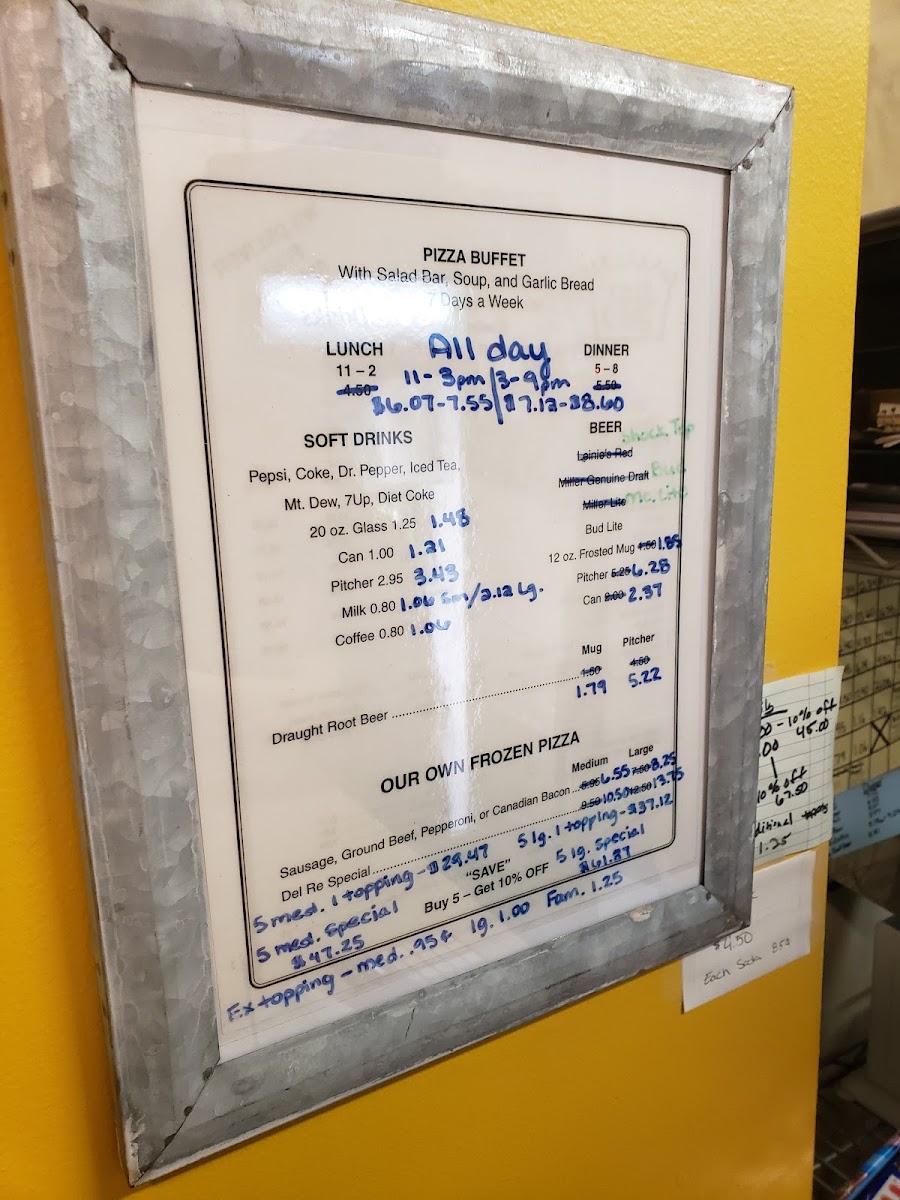 PIZZA BUFFET
With Salad Bar, Soup, and Garlic Bread
7 Days a Week
LUNCH All day DINNER
11 – 2 11 - 3pm / 3 - 9pm 5 – 8
4.50 5.50
$6.07-7.55 / $7.12-$8.60
SOFT DRINKS
Pepsi, Coke, Dr. Pepper, Iced Tea,
Mt. Dew, 7Up, Diet Coke
20 oz. Glass 1.25 1.48
Can 1.00 1.21
Pitcher 2.95 3.43
Milk 0.80 1.06 sm/2.12 lg.
Coffee 0.80 1.06
BEER
Shock Top
Leinie's Red
Miller Genuine Draft Bud
Miller Lite Mc. Lite
Bud Lite
12 oz. Frosted Mug 1.50 1.85
Pitcher 5.25 6.28
Can 2.00 2.37
Mug Pitcher
1.50 4.50
1.79 5.22
Draught Root Beer
OUR OWN FROZEN PIZZA
Medium Large
Sausage, Ground Beef, Pepperoni, or Canadian Bacon ... 5.95 6.55 7.50 8.25
Del Re Special 9.50 10.50 12.50 13.75
5 med. 1 topping - $29.47 5 lg. 1 topping - $37.12
"SAVE"
Buy 5 – Get 10% OFF
5 med. Special
$47.25
5 lg. Special
$61.87
Ex topping - med. .95¢ lg. 1.00 Fam. 1.25
- 10% off
45.00
10% off
67.50
1.25
$4.50
Each Soda 85¢